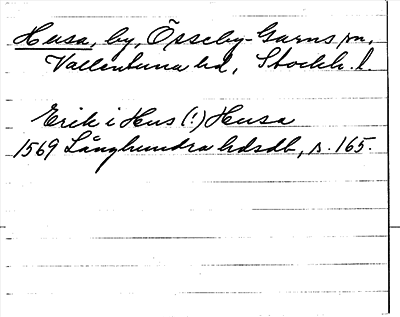 Husa, by, Össeby-Garns sn,
Vallentuna hd, Stockh. l.
Erik i Hus (!) Husa
1569 Långhundra hdsdb, s. 165.